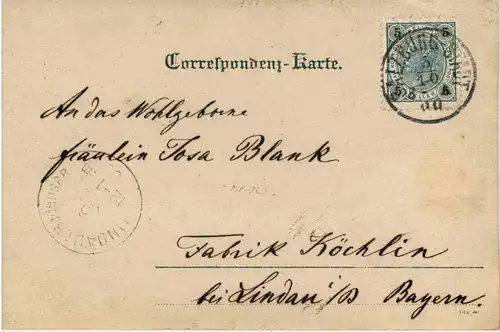 Correspondenz-Karte.
5 5
5 5
An das Wohlgeborne
fräulein Josa Blank
Fabrik Köchlin
bei Lindau i/B Bayern.
LINDAU
12-1